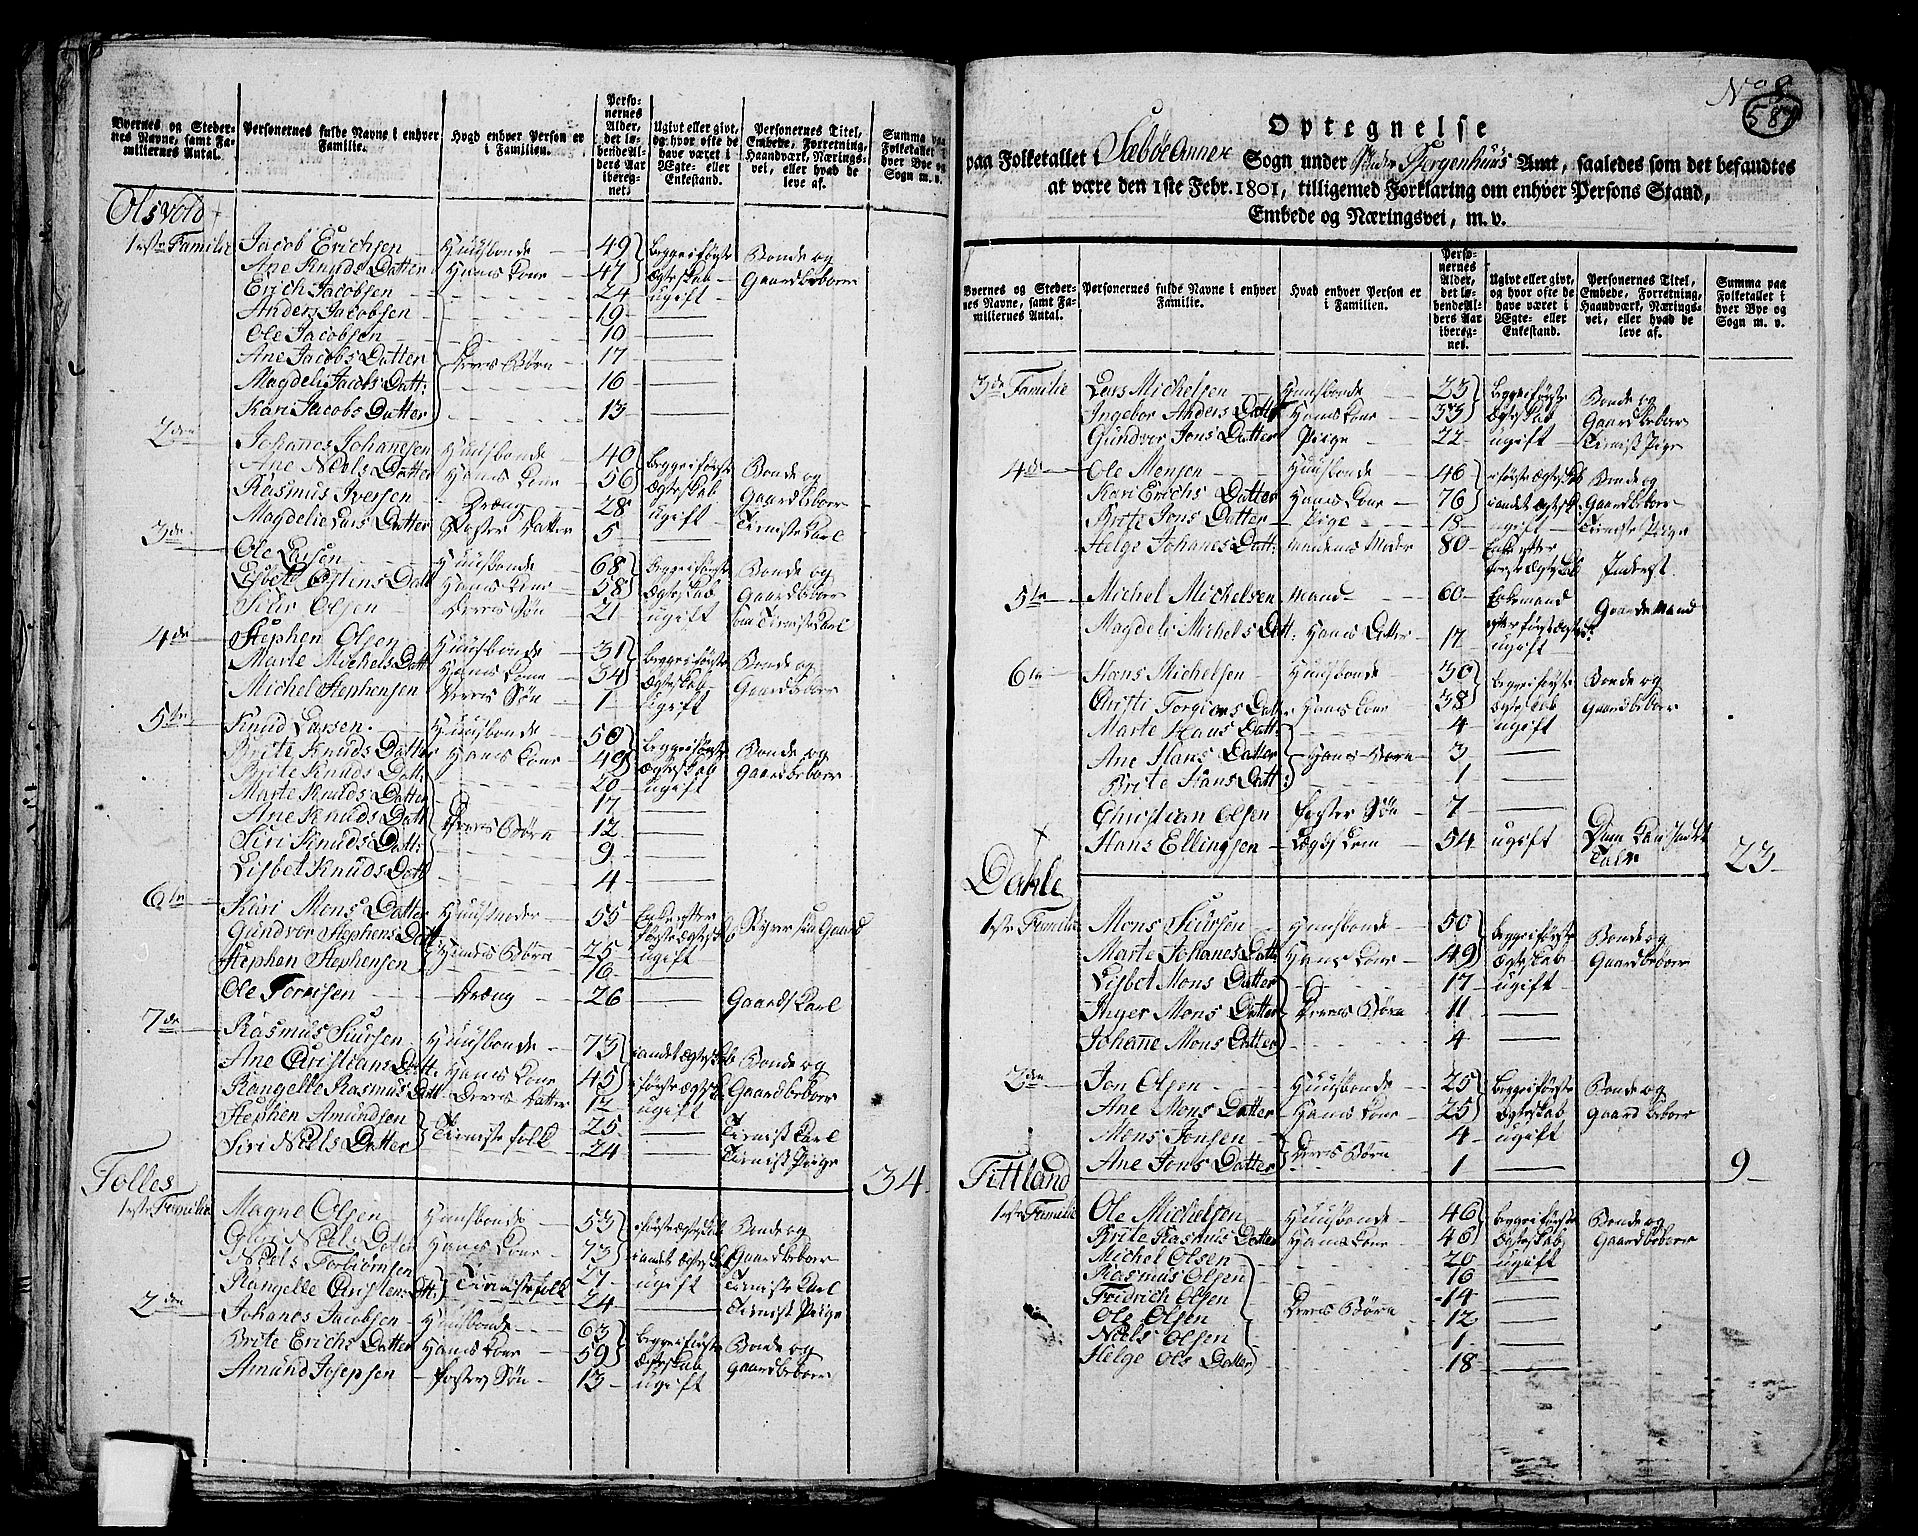 Byernes og Steder-
nes Navne, samt Fa-
miliernes Antal.
Personernes fulde Navne i enhver
Familie.
Hvad enhver Person er
i Familien.
Perso-
nernes
Alder,
det lø-
bende Al-
ders Aar
iberegnet.
Ugivt eller givt,
og hvor ofte de
have været i
Ægte- eller
Enkestand.
Personernes Titel,
Embede, Forretning,
Haandværk, Nærings-
vei, eller hvad de
leve af.
Summa paa
Folketallet i
hver Bye og
Sogn m. v.
Olsvold
1ste Familie Jacob Erichsen Huusbonde 49 begge i første Bonde og
Ane Knuds Datter Hans Kone 47 Ægteskab Gaardbeboer
Erich Jacobsen 24 ugift
Anders Jacobsen 19
Ole Jacobsen 10
Ane Jacobs Datter Deres Børn 17
Magdeli Jacobs Datt: 16
Kari Jacobs Datter 13
2den Johanes Johansen Huusbonde 40 begge i første Bonde og
Ane Niels Datter Hans Kone 56 Ægteskab Gaardbeboer
Rasmus Iversen Dræng 28 ugift Tieniste Karl
Magdelie Lars Datter Foster Datter 5
3de Ole Larsen Huusbonde 68 begge i første Bonde og
Lisbet Datt Hans Kone 58 Ægteskab Gaardbeboer
Siur Olsen Deres Søn 21 ugift Tieniste Karl
4de Stephen Olsen Huusbonde 31 begge i første Bonde og
Marte Michels Datt Hans Kone 34 Ægteskab Gaardbeboer
Michel Stephensen Deres Søn 1 ugift
5te Knud Larsen Huusbonde 50 begge i første Bonde og
Brite Knuds Datter Hans Kone 49 Ægteskab Gaardbeboer
Brite Knuds Datt: 20 ugift
Marte Knuds Datter 17
Ane Knuds Datt Deres Børn 12
Siri Knuds Datt: 9
Lisbet Knuds Datt 4
6te Kari Mons Datter Huusmoder 55 Enke efter
Gundvor Stephens Datt Hendes Børn 25 første Ægteskab Gaard
Stephen Stephensen 16 ugift
Ole Dræng 26 Gaards Karl
7de Rasmus Siursen Huusbonde 73 i andet Ægteskab Bonde og
Ane Christians Datt. Hans Kone 45 i første Ægtesk Gaardbeboer
Rangelle Rasmus Datt Deres Datter 12 ugift
Stephen Amundsen Tieniste folk 25 Tienist Karl
Siri Niels Datter 24 Tienist Piige
34
Tolles
1ste Familie Magne Olsen Huusbonde 53 i første Ægteskab Bonde og
Niels Datter Hans Kone 73 i andet Ægtesk Gaardbeboer
Niels Torbiørnsen Tienistefolk 27 ugift Tieniste Karl
Rangelle Christens Datt: 24 Tienist Piige
2den Johanes Jacobsen Huusbonde 63 begge i første Bonde og
Brite Erichs Datter Hans Kone 59 Ægteskab Gaardbeboer
Amund Josepsen foster Søn 13 ugift
No 8
587
Optegnelse
paa Folketallet i Sæbøe Annex Sogn under Søndre Bergenhuus Amt, saaledes som det befandtes
at være den 1ste Febr. 1801, tilligemed Forklaring om enhver Persons Stand,
Embede og Næringsvei, m. v.
Byernes og Steder-
nes Navne, samt Fa-
miliernes Antal.
Personernes fulde Navne i enhver
Familie.
Hvad enhver Person er
i Familien.
Perso-
nernes
Alder,
det lø-
bende Al-
ders Aar
ibereg-
net.
Ugivt eller givt,
og hvor ofte de
have været i
Ægte- eller
Enkestand.
Personernes Titel,
Embede, Forretning,
Haandværk, Nærings-
vei, eller hvad de
leve af.
Summa paa
Folketallet i
hver Bye og
Sogn m. v.
3de Familie Lars Michelsen Huusbonde 23 begge i første Bonde og
Ingebor Anders Datter Hans Kone 33 Ægteskab Gaardbeboer
Gundvor Jons Datter Piige 22 ugift Tienist Pige
4de Ole Monsen Huusbonde 46 i første Ægtesk Bonde og
Kari Erichs Datter Hans Kone 76 i andet Ægtesk Gaardbeboer
Brite Jons Datter Pige 18 ugift Tieniste Pige
Helge Johanes Datt: Mandens Moder 80 Enke efter
første Ægteskab Inderst.
5te Michel Michelsen Mand 60 Enkemand Gaardemand
efter første Ægtesk:
Magdeli Michels Datt: Hans Datter 17 ugift
6te Hans Michelsen Huusbonde 30 begge i første Bonde og
Christi Torgiers Datt: Hans Kone 38 Ægteskab Gaardbeboer
Marte Hans Datt: 4 ugift
Ane Hans Datter Hans Børn 3
Brite Hans Datt: 1
Christian Olsen foster Søn 7
Hans Ellingsen Lægds Lem 54 ugift Dum kan
Tale
23
Dahle
1ste Familie Mons Siursen Huusbonde 50 begge i første Bonde og
Marte Johanes Datt: Hans Kone 49 Ægteskab Gaardbeboer
Lisbet Mons Datter 17 ugift
Inger Mons Datter Deres Børn 11
Johanne Mons Datter 4
2den Jon Olsen Huusbonde 25 begge i første Bonde og
Ane Mons Datter Hans Kone 25 Ægteskab Gaardbeboer
Mons Jonsen Deres Børn 4 ugift
Ane Jons Datter 1
9
Titland
1ste Familie Ole Michelsen Huusbonde 46 begge i første Bonde og
Brite Rasmus Datter Hans Kone 46 Ægteskab Gaardbeboer
Michel Olsen 20 ugift
Rasmus Olsen 16
Fridrich Olsen Deres Børn 14
Ole Olsen 12
Niels Olsen 1
Helge Ols Datter 18